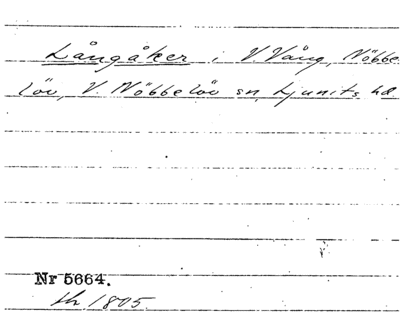 Långåker i V. Vång, Nöbbe-
löv, V. Nöbbelöv sn, Ljunits hd.
Nr 5664.
th 1805.